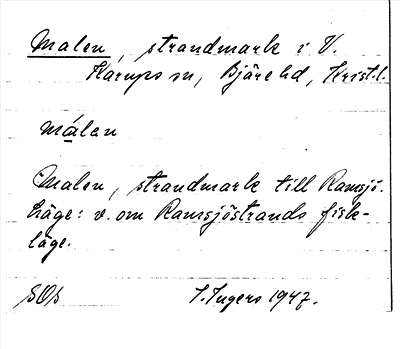 Malen, strandmark i V.
Karups sn, Bjäre hd, Krist. l.
målen
Malen, strandmark till Ramsjö.
Läge: v. om Ramsjöstrands fisk-
läge.
SOS I. Ingers 1947.